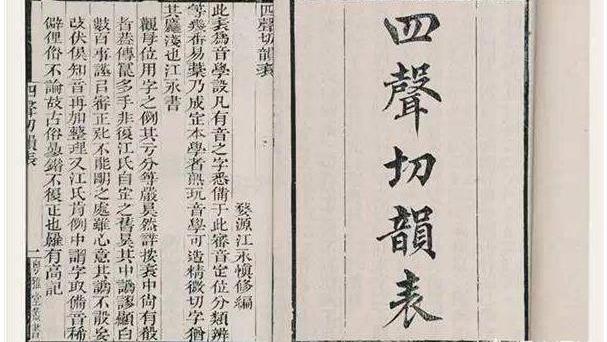 四聲切韻表
四聲切韻表
婺源江永慎修編
此表為音學設凡有音之字悉備于此審音定位分類辨
等幾番易藁乃成定本學者熟玩音學可造精微切字猶
其麤淺也江永書
觀母位用字之例其于分等嚴矣然詳按表中尚有殽
者蓋傳寫多手非復江氏自定之舊矣其中譌謬顯白
數百事謹已審正不能之處雖心意其譌不敢妄
改伏俟知音再加整理又江氏例中謂字取備音稀
僻俚俗不論故古俗不復正也羅有高記
四聲切韻表 一 粤雅堂叢書